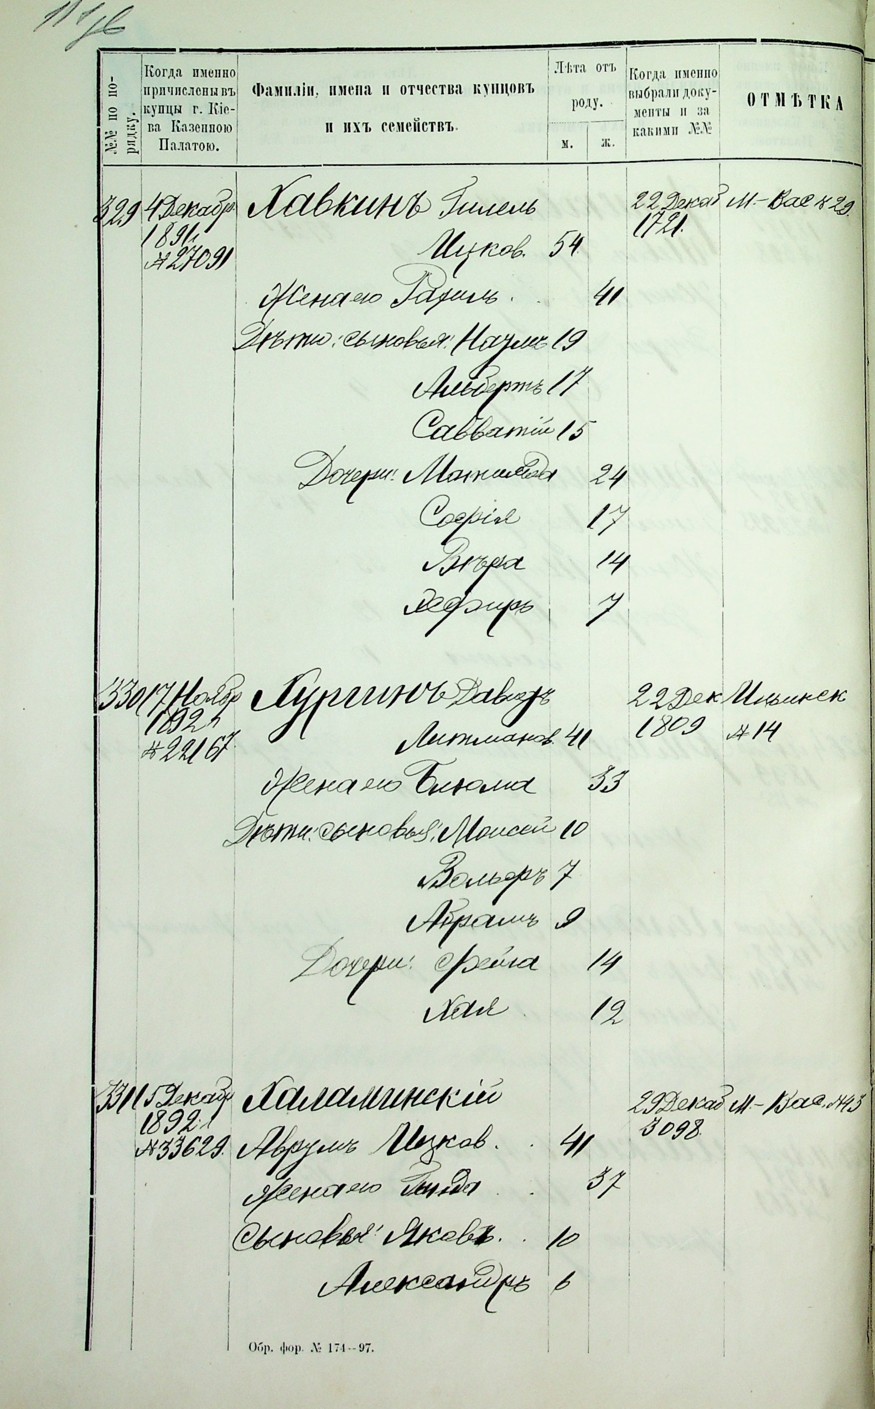 №№ по по-
рядку.
Когда именно
причислены въ
купцы г. Кіе-
ва Казенною
Палатою.
Фамиліи, имена и отчества купцовъ
и ихъ семействъ.
Лѣта отъ
роду.
м. ж.
Когда именно
выбрали доку-
менты и за
какими №№
ОТМѢТКА
329 4 Декабр Хавкинъ Гилель 22 Декаб М.-Вас № 29
1891 1721
№ 27091 Ицков. 54
Жена его Рахиль . . 41
Дѣти: сыновья: Наумъ 19
Альбертъ 17
Савватій 15
Дочери: Матильда 24
Софія 17
Вѣра 14
7
330 17 Ноябр Хургинъ Давидъ 22 Дек Ильинск
1892 1809 № 14
№ 22167 Литманов. 41
Жена его Блюма 33
Дѣти: сыновья: Моисей 10
Вольфъ 7
Абрамъ 9
Дочери: Фейга 14
Хая 12
331 15 Декабр Халаминскій 29 Декаб М.-Вас. № 43
1892 3098
№ 33629 Аврумъ Ицков. . 41
Жена его Гинда . . 37
Сыновья: Яковъ. . 10
Александръ 6
Обр. фор. № 174—97.